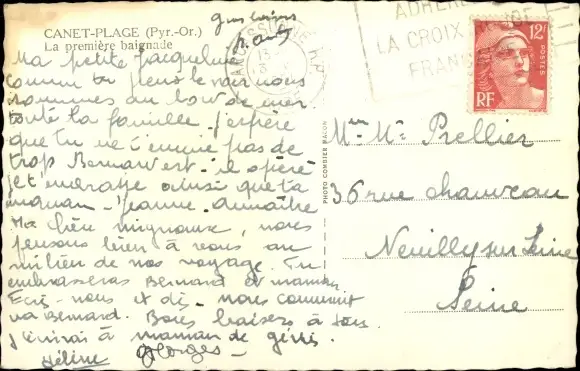 CANET-PLAGE (Pyr.-Or.)
La première baignade
Ma petite Jacqueline
comme tu peux le voir nous
sommes au bord de mer
toute la famille. J'espère
que tu ne t'ennuie pas de
trop Bernard est-il opéré
je t'embrasse ainsi que ta
maman - Jeanne
Ma bien mignonne, nous
pensons bien à vous au
milieu de nos voyage. Tu
embrasseras Bernard et maman
Ecris-nous et dis-nous comment
va Bernard. Bons baisers à tous.
J'écrirai à maman de
Hélène Georges -
ADHÉREZ
LA CROIX ROUGE
FRANÇAISE
12F
POSTES
RF
PHOTO COMBIER MACON
Prellier
36 rue Chauveau
Neuilly sur Seine
Seine